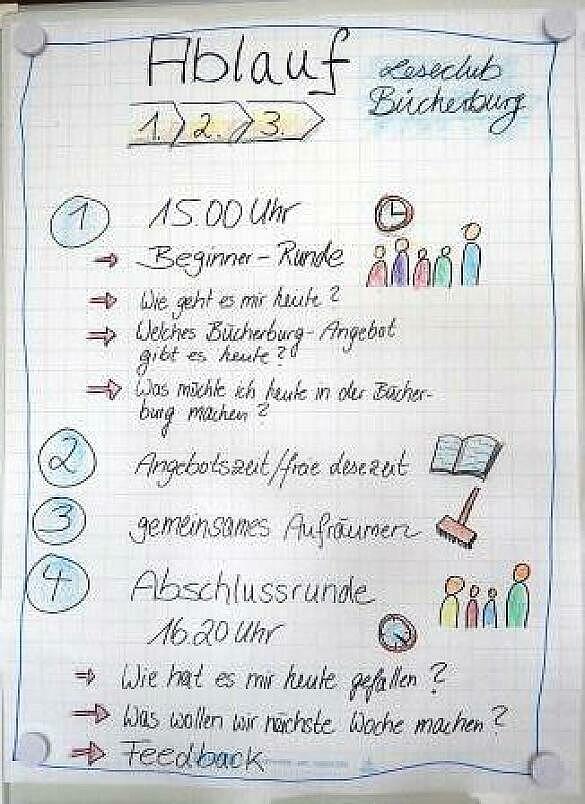 Ablauf
Leseclub
Bücherburg
1. 2. 3.
1 15.00 Uhr
Beginner-Runde
Wie geht es mir heute?
Welches Bücherburg-Angebot
gibt es heute?
Was möchte ich heute in der Bücher-
burg machen?
2 Angebotszeit/freie Lesezeit
3 gemeinsames Aufräumen
4 Abschlussrunde
16.20 Uhr
Wie hat es mir heute gefallen?
Was wollen wir nächste Woche machen?
Feedback